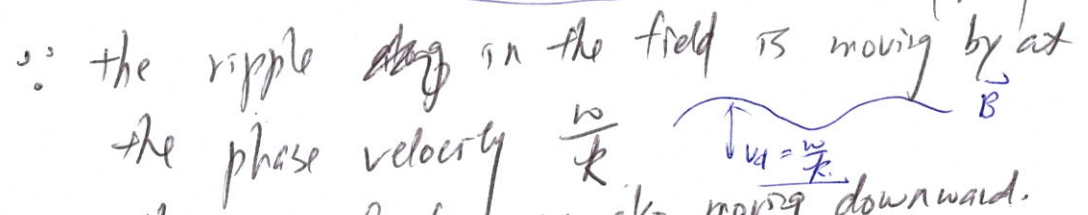 ∵ the ripple in the field is moving by at
the phase velocity w/k
B⃗
v_d = w/k
moving downward.